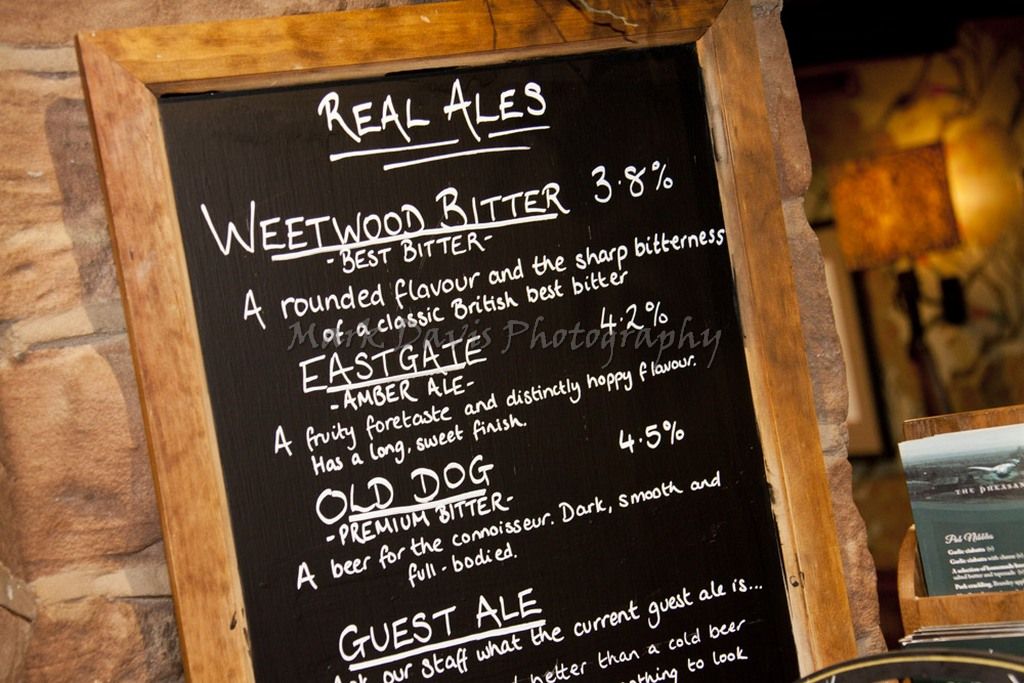 REAL ALES
WEETWOOD BITTER 3.8%
-BEST BITTER-
A rounded flavour and the sharp bitterness
of a classic British best bitter
EASTGATE 4.2%
-AMBER ALE-
A fruity foretaste and distinctly hoppy flavour.
Has a long, sweet finish.
OLD DOG 4.5%
-PREMIUM BITTER-
A beer for the connoisseur. Dark, smooth and
full-bodied.
GUEST ALE
Ask our staff what the current guest ale is...
better than a cold beer
to look
Mark Davis Photography
THE PHEASANT
Pub Nibbles
Garlic ciabatta (v)
Garlic ciabatta with cheese (v)
A selection of homemade